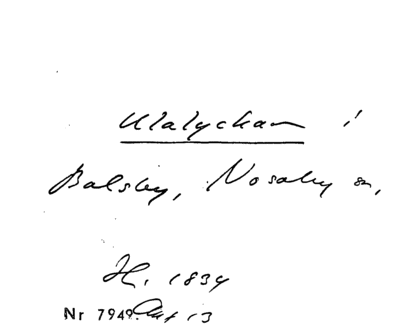 Ulalyckan
Balsby, Nosaby sn,
H. 1834
Nr 7949. Akt 13